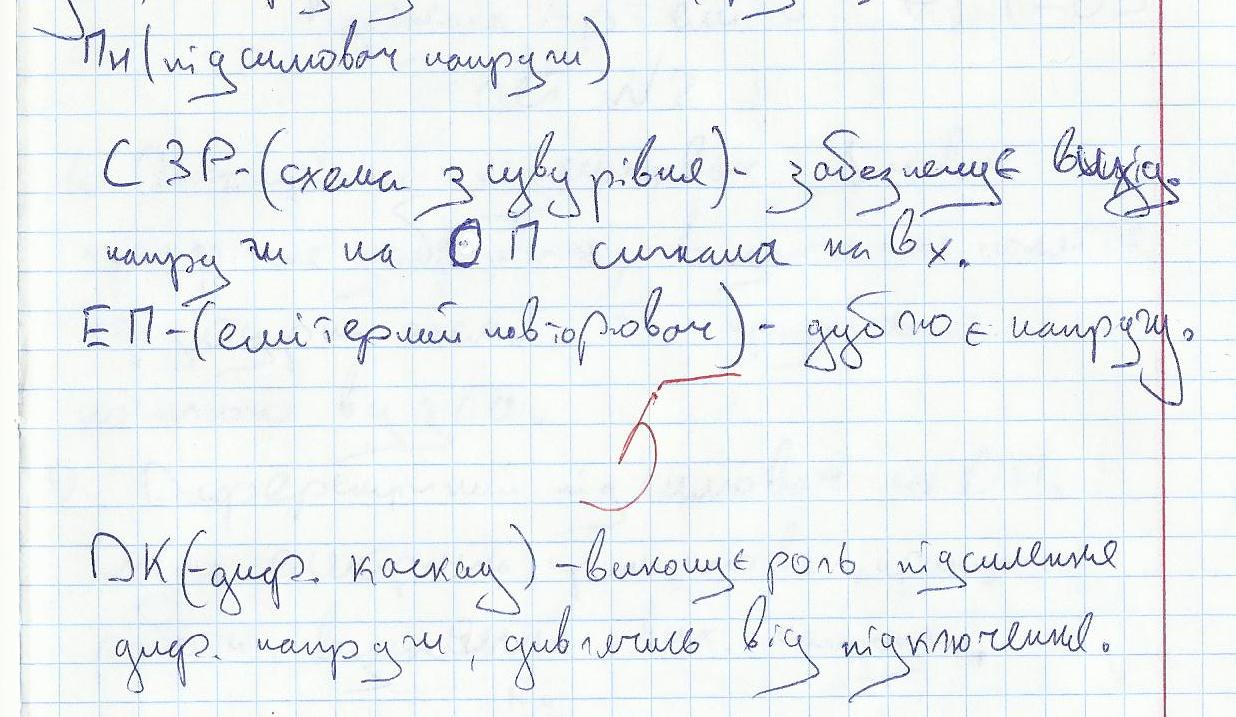 ПН (підсиловач напруги)
СЗР-(схема зсуву рівня)- забезпечує вихід.
напруги на ОП сигнала на вх.
ЕП-(емітерний повторювач)- дублює напругу.
5
ДК(-диф. каскад) -виконує роль підсилення
диф. напруги, дивлячись від підключення.